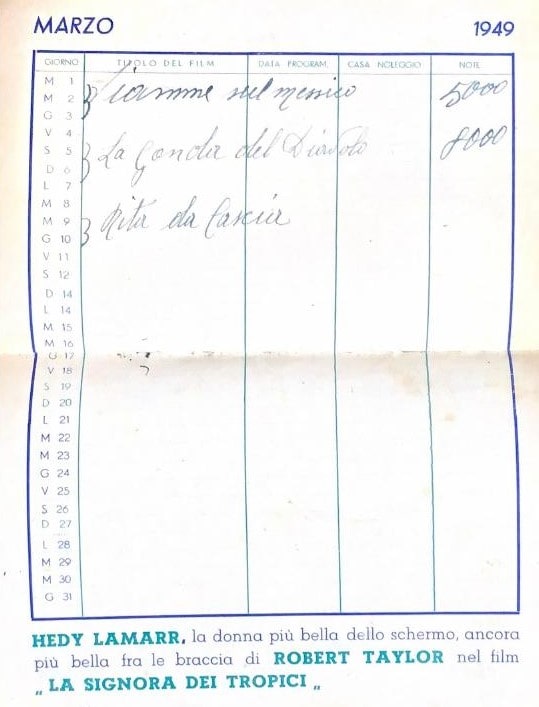 MARZO 1949
GIORNO TITOLO DEL FILM DATA PROGRAM. CASA NOLEGGIO NOTE
M 1
M 2 Fiamme sul messico 5000
G 3
V 4
S 5 La Gonda del Diavolo 8000
D 6
L 7
M 8
M 9 Rita da Cascia
G 10
V 11
S 12
D 14
L 14
M 15
M 16
G 17
V 18
S 19
D 20
L 21
M 22
M 23
G 24
V 25
S 26
D 27
L 28
M 29
M 30
G 31
HEDY LAMARR, la donna più bella dello schermo, ancora
più bella fra le braccia di ROBERT TAYLOR nel film
„ LA SIGNORA DEI TROPICI „